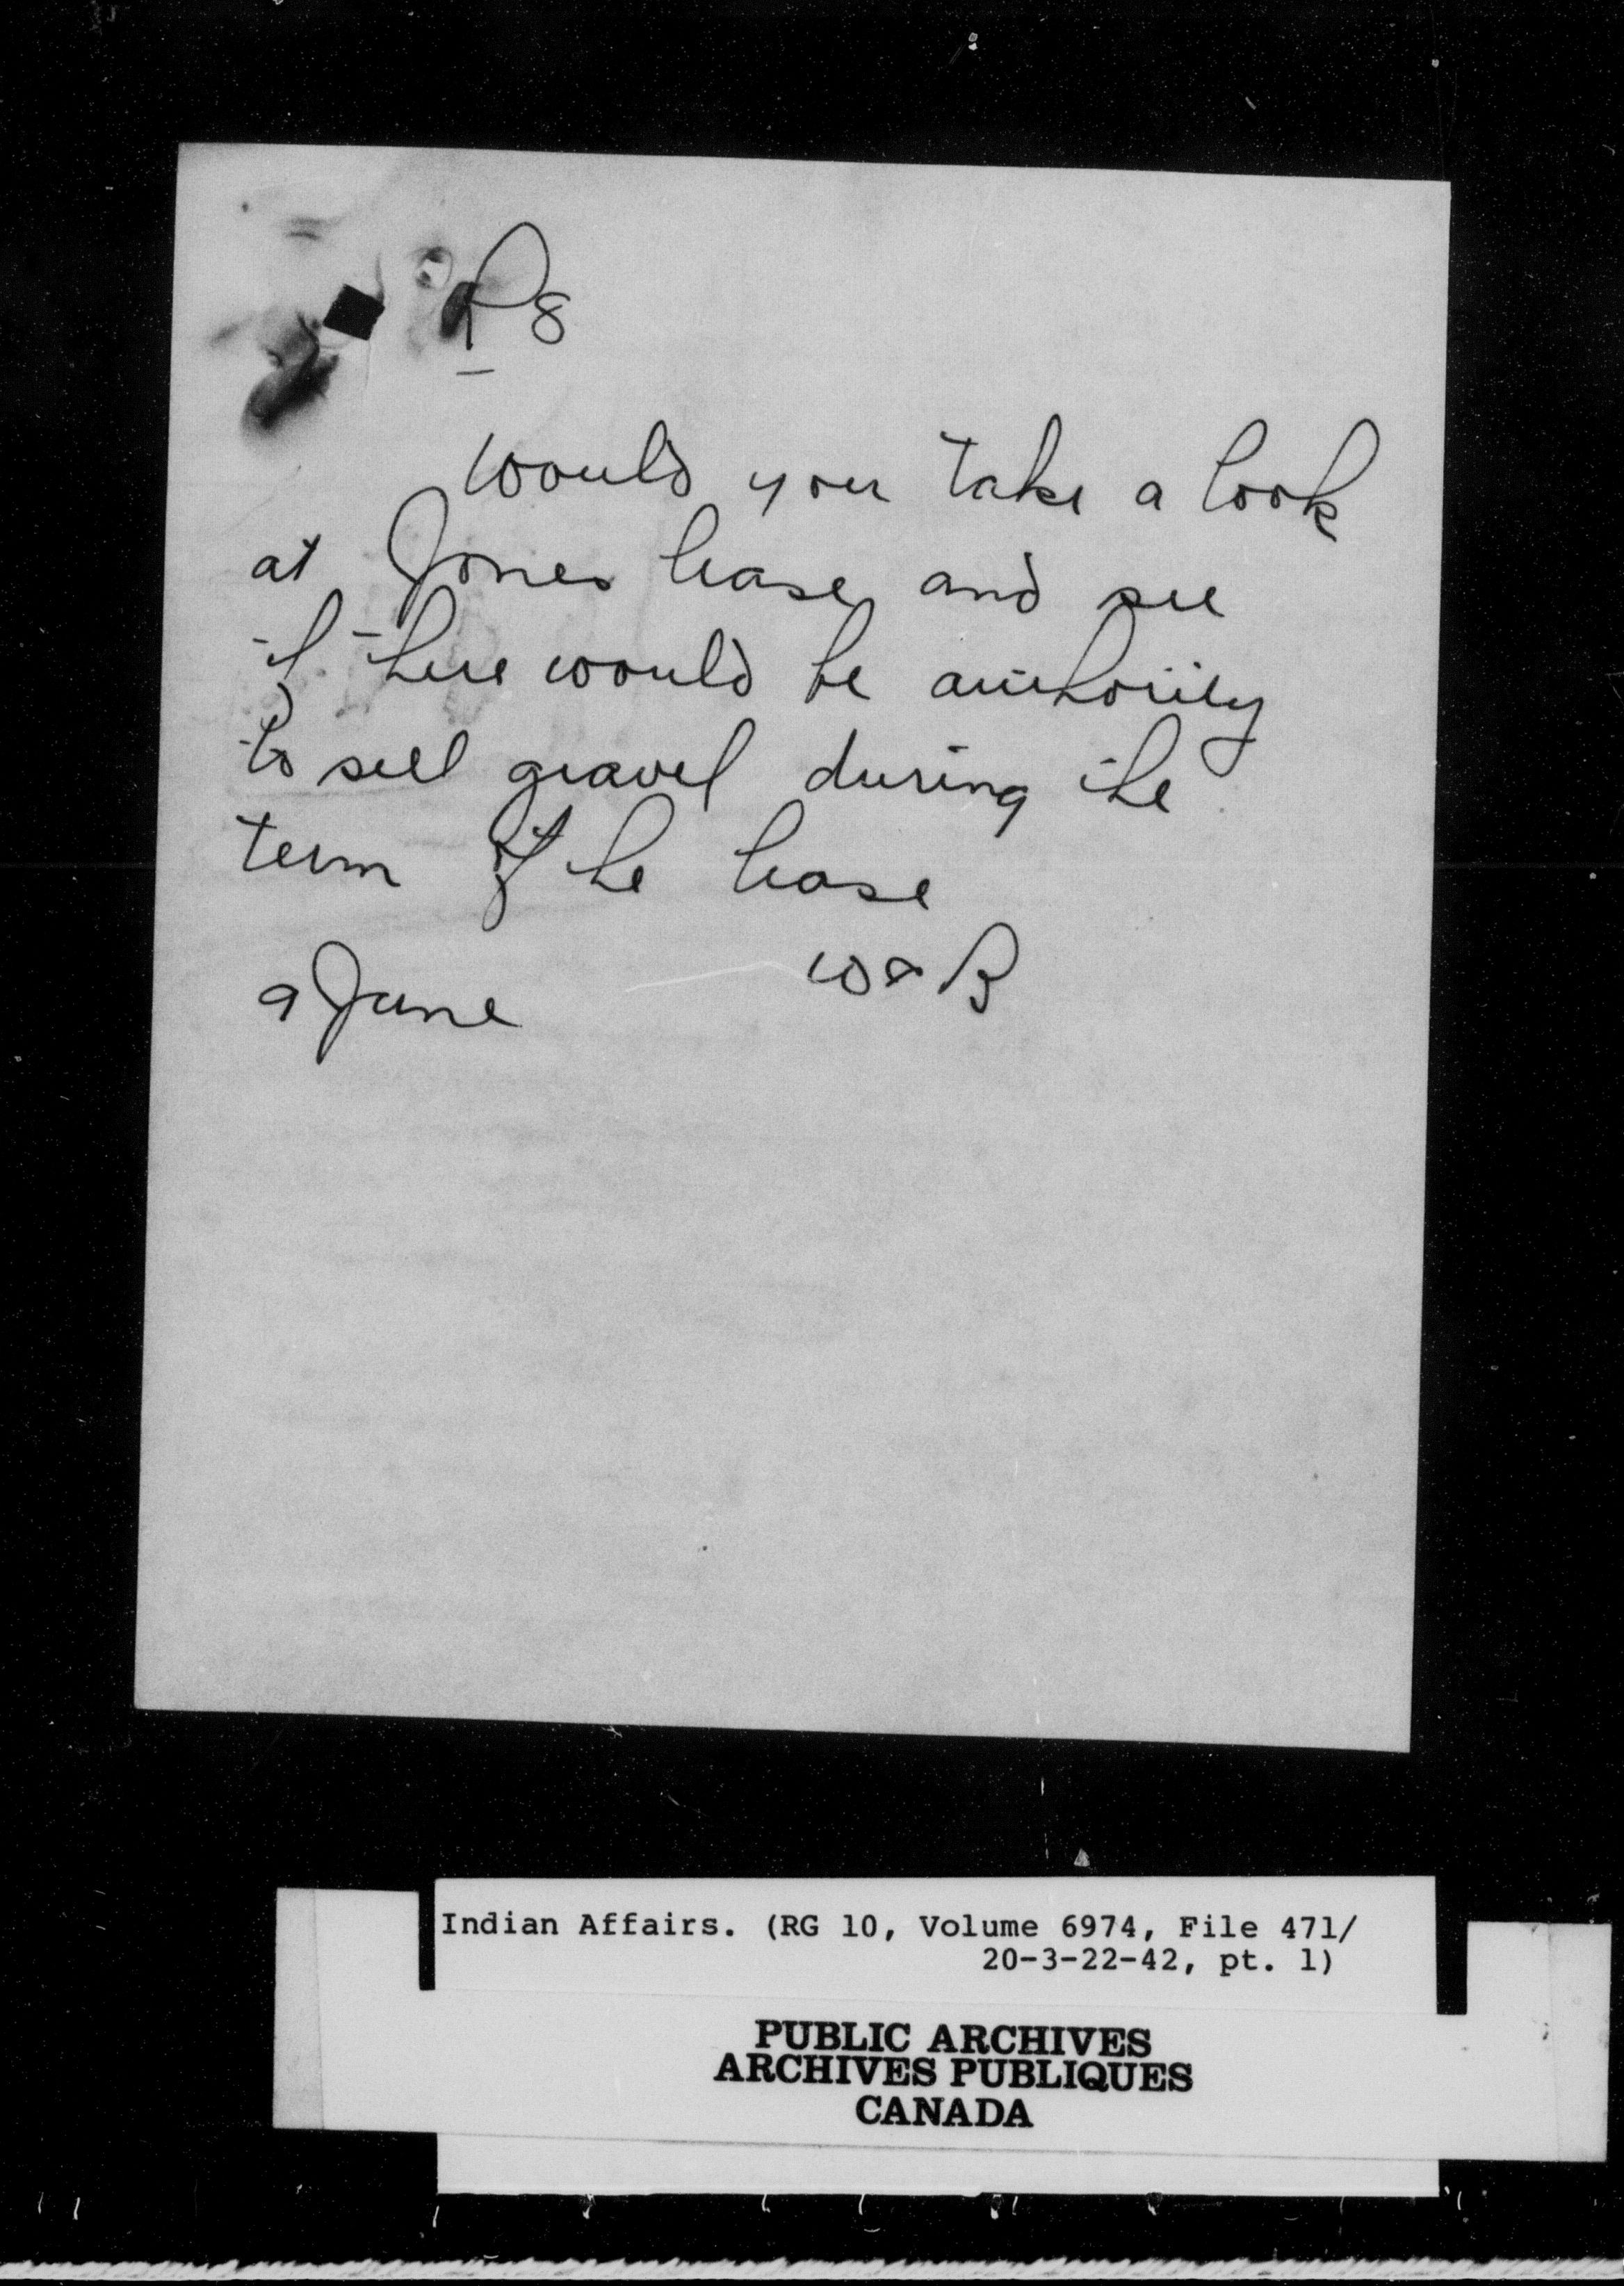 P8
Would you take a look
at Jones lease and see
if there would be authority
to sell gravel during the
term of the lease
9 June
Indian Affairs. (RG 10, Volume 6974, File 471/
20-3-22-42, pt. 1)
PUBLIC ARCHIVES
ARCHIVES PUBLIQUES
CANADA